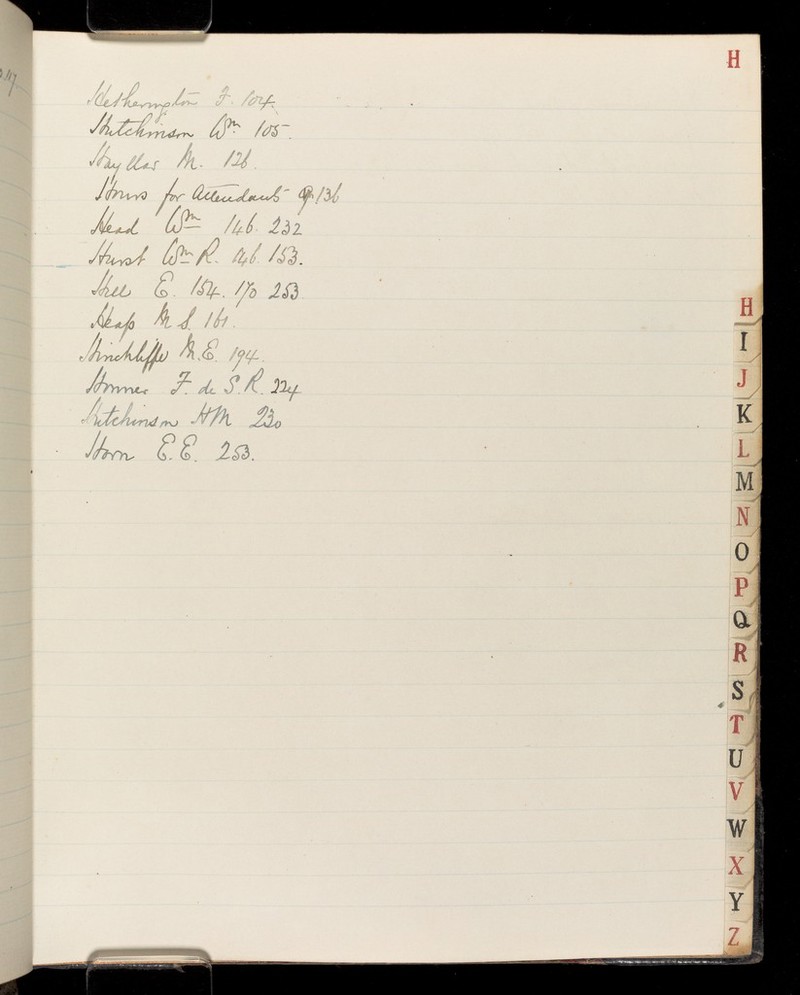 H
Hetherington F. 104.
Hutchinson Wm. 105.
Hayllar M. 126.
Hours for Attendants 136
Head Wm 146. 232
Hurst Wm R. 146. 153.
Hill E. 154. 170 253
Heap M S. 161.
Hinchliffe M.E. 194.
F. de S. R. 224
Hutchinson HM 230
Horn E.E. 253.
H
I
J
K
L
M
N
O
P
Q
R
S
T
U
V
W
X
Y
Z